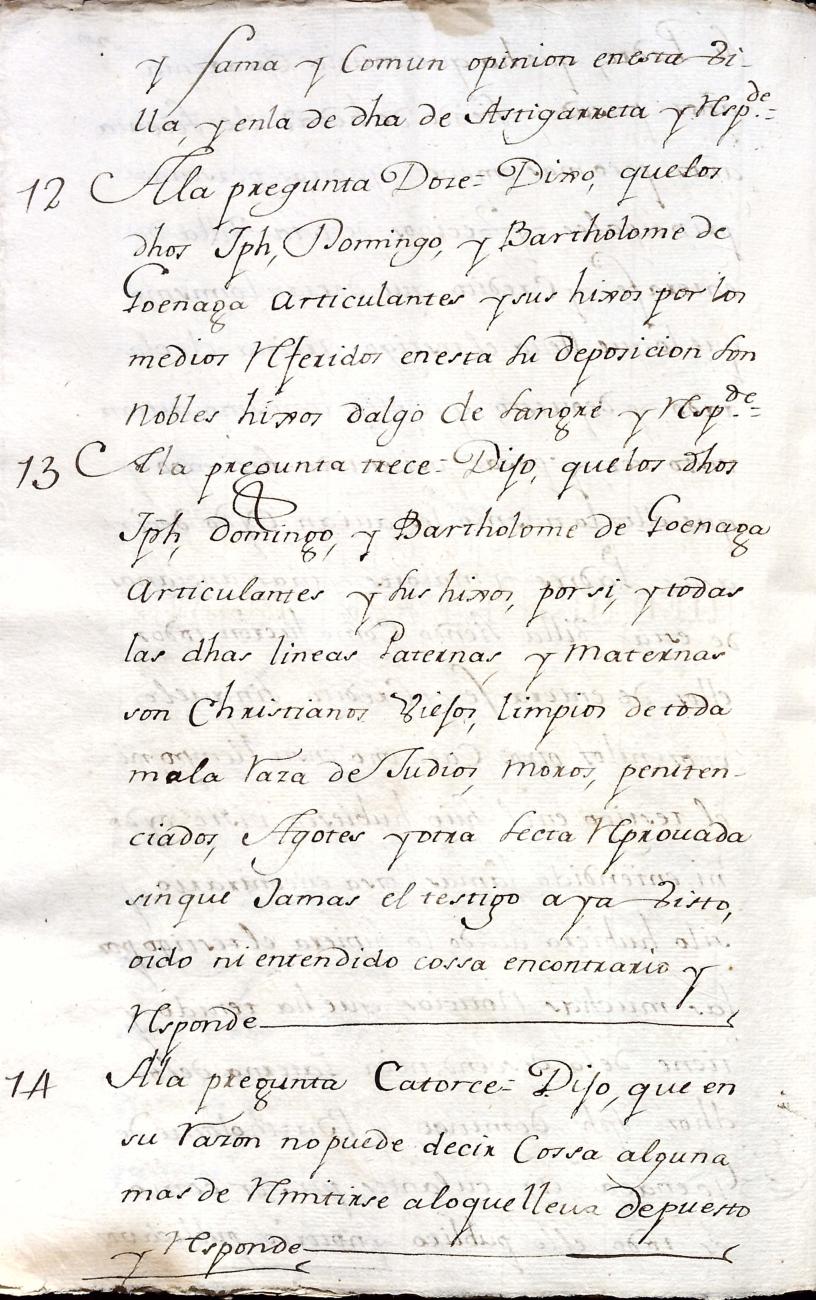 y fama y Comun opinion enesta Vi-
lla, y enla de dha de Astigarreta y Resp.de=
12 A la pregunta Doze= Dixo, quelos
dhos Jph, Domingo, y Bartholome de
Goenaga articulantes y sus hixos por los
medios Referidos enesta su deposicion son
Nobles hixos dalgo de sangre y Resp.de=
13 A la pregunta trece= Dijo, quelos dhos
Jph, domingo, y Bartholome de Goenaga
articulantes y sus hixos, por si, y todas
las dhas lineas Paternas, y maternas
son Christianos Viejos, limpios de toda
mala Raza de Judios, moros, peniten-
ciados, Agotes y otra secta Reprouada
sinque Jamas el testigo aya Visto,
oido ni entendido cossa encontrario y
Responde
14 A la pregunta Catorce= Dijo, que en
su Razon no puede decir Cossa alguna
mas de Remitirse aloque lleua depuesto
y Responde